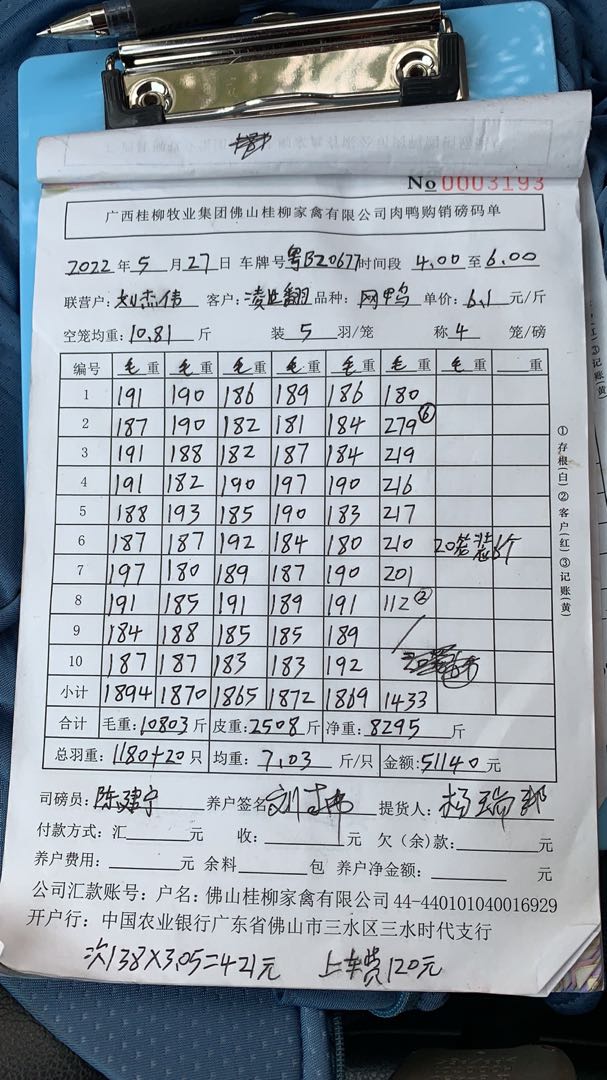 No 0003193
广西桂柳牧业集团佛山桂柳家禽有限公司肉鸭购销磅码单
2022年5月27日 车牌号粤BZ0677时间段 4.00至6.00
联营户:刘杰伟 客户:凌 翻 品种:网鸭 单价:6.1元/斤
空笼均重:10.81斤 装5羽/笼 称4笼/磅
编号 毛重 毛重 毛重 毛重 毛重 毛重 毛重 重
1 191 190 186 189 186 180
2 187 190 182 181 184 279⑥
3 191 188 182 187 184 219
4 191 182 190 197 190 216
5 188 193 185 190 183 217
6 187 187 192 184 180 210 20笼装6个
7 197 180 189 187 190 201
8 191 185 191 189 191 112②
9 184 188 185 185 189
10 187 187 183 183 192
小计 1894 1870 1865 1872 1869 1433
合计 毛重:10803斤 皮重:2508斤 净重:8295斤
总羽重:1180+20只 均重:7.03斤/只 金额:51140元
司磅员:陈建宁 养户签名 刘 提货人:杨瑞
付款方式:汇 元 收: 元 欠(余)款: 元
养户费用: 元 余料 包 养户净金额: 元
公司汇款账号:户名:佛山桂柳家禽有限公司44-440101040016929
开户行:中国农业银行广东省佛山市三水区三水时代支行
次138×3.05=421元 上车费120元
①存根(白)②客户(红)③记账(黄)
③记账(黄)